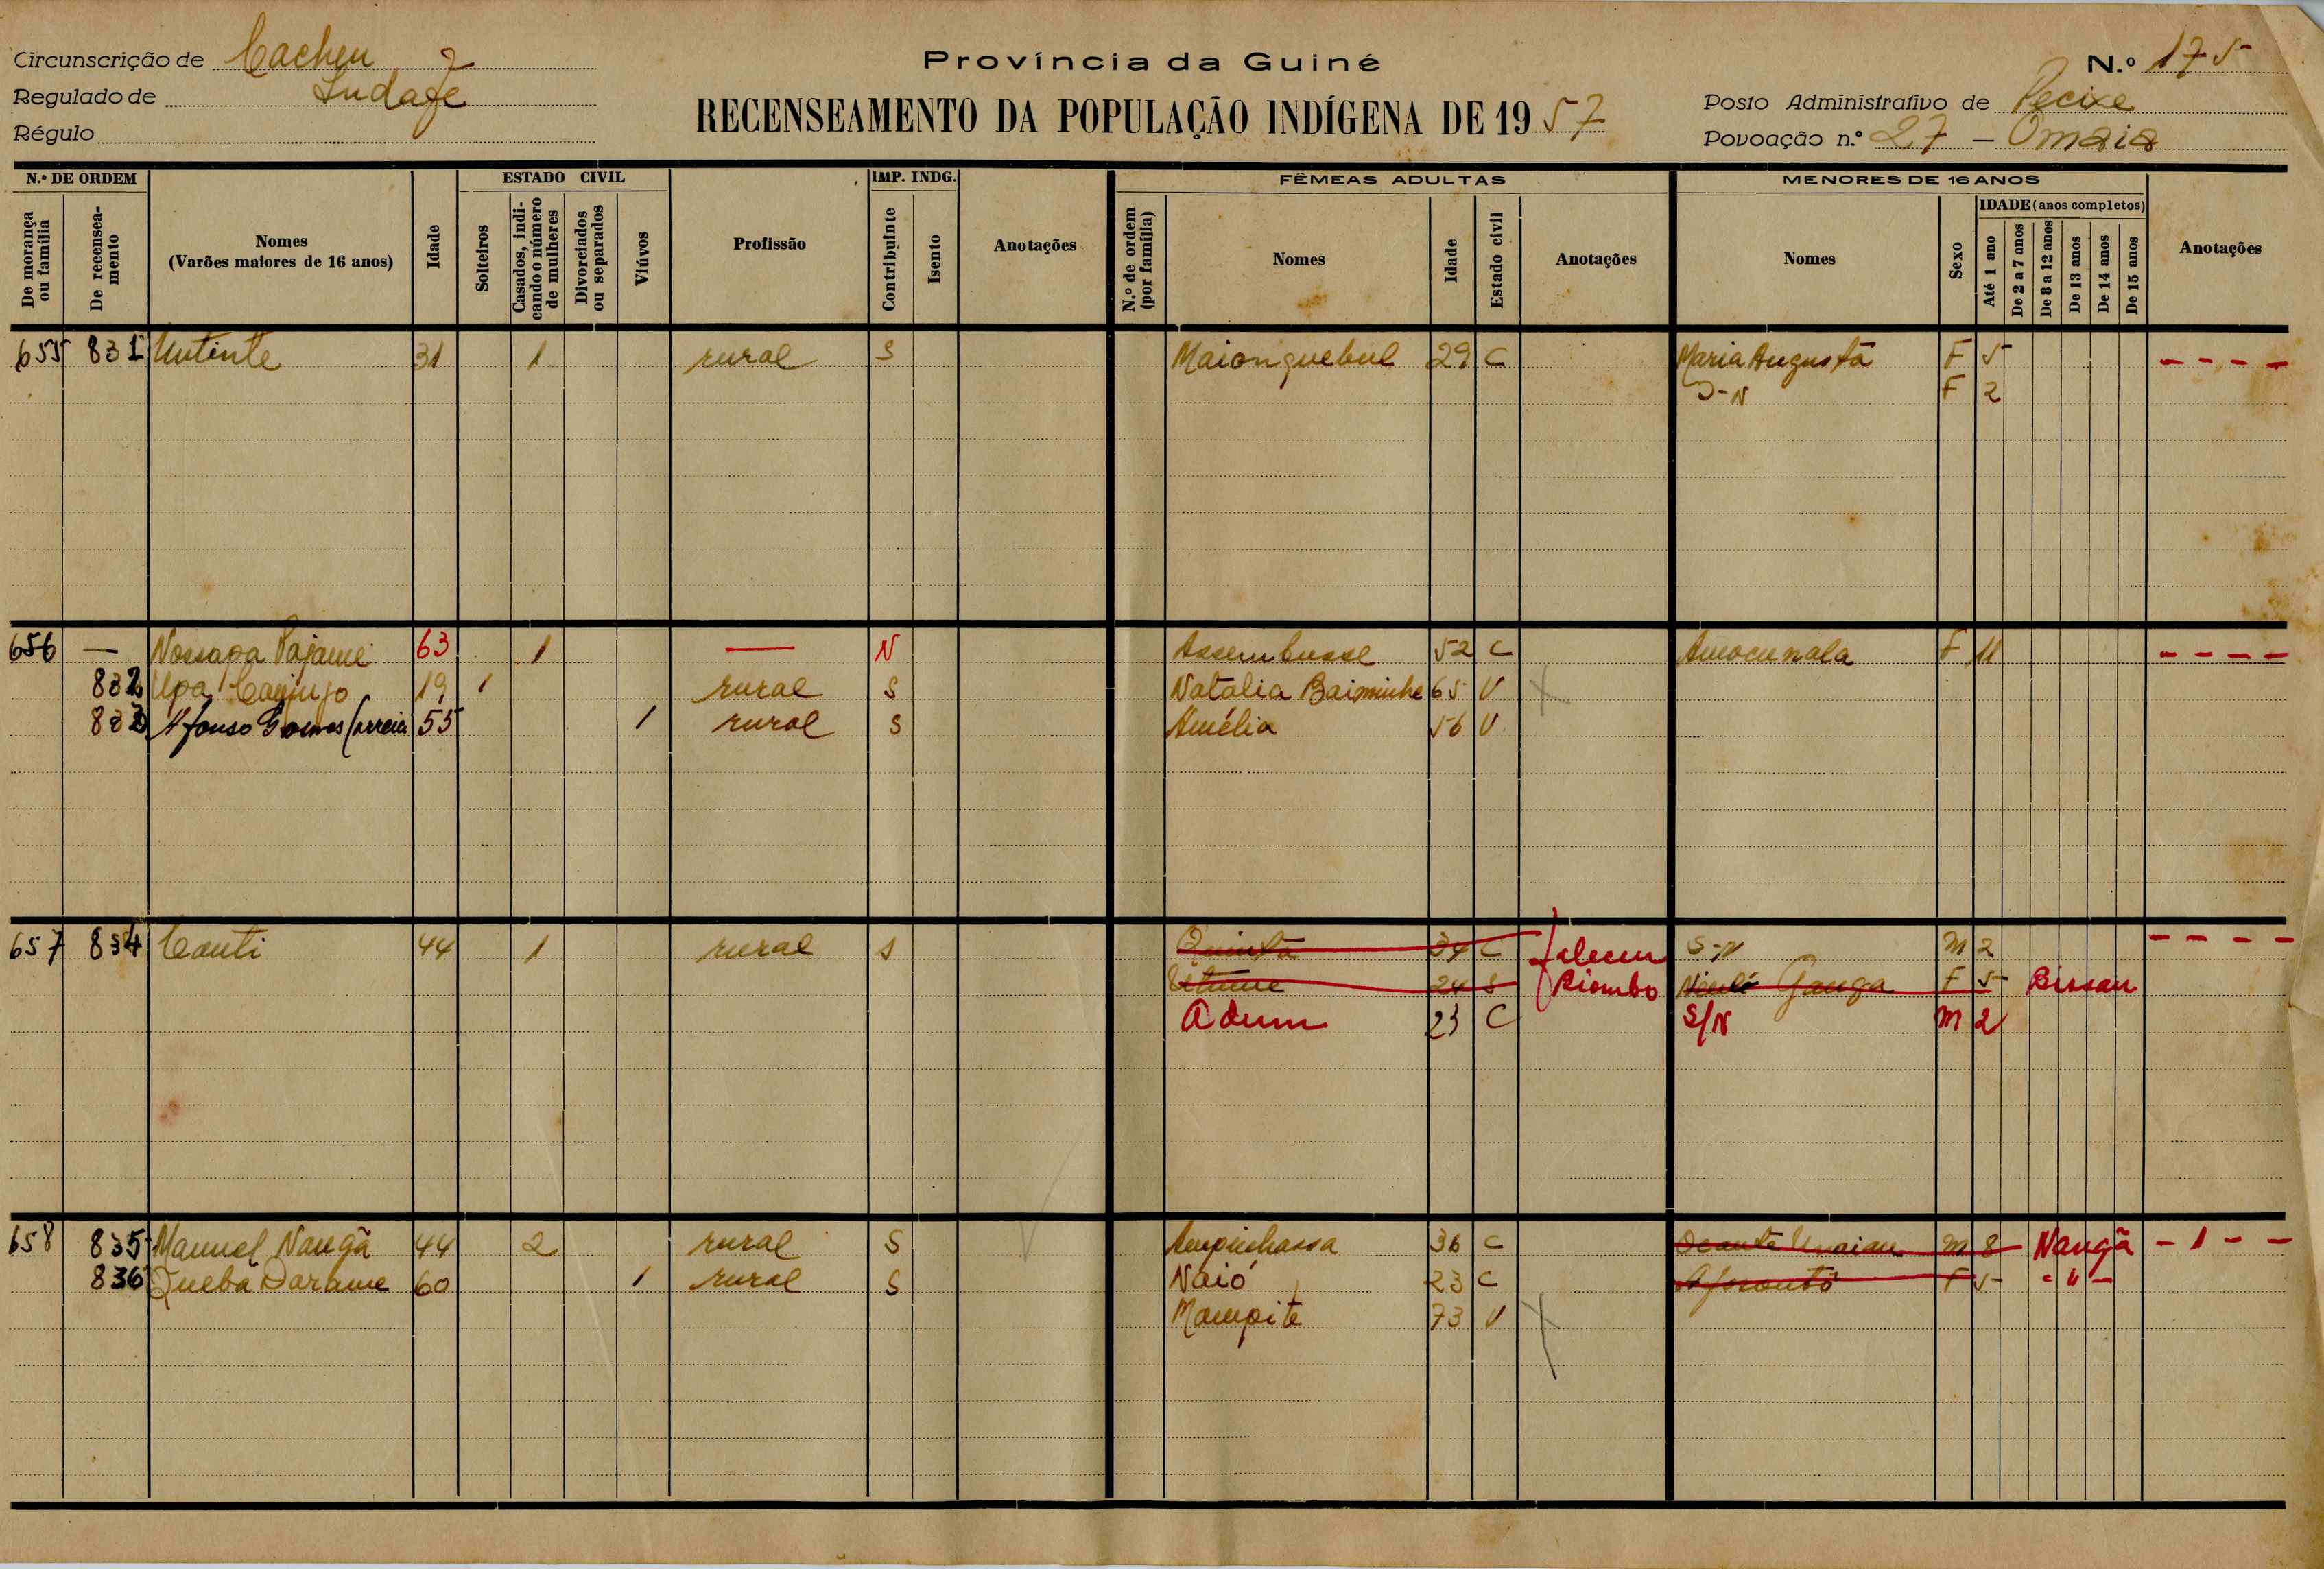 Circunscrição de Cacheu
Regulado de Indafe
Régulo
Província da Guiné
RECENSEAMENTO DA POPULAÇÃO INDÍGENA DE 1957
N.º 175
Posto Administrativo de Pecixe
Povoação n.º 27 — Omaia
N.º DE ORDEM
De morança ou família
De recenseamento
Nomes
(Varões maiores de 16 anos)
Idade
ESTADO CIVIL
Solteiros
Casados, indicando o número de mulheres
Divorciados ou separados
Viúvos
Profissão
IMP. INDG.
Contribuinte
Isento
Anotações
FÊMEAS ADULTAS
N.º de ordem (por família)
Nomes
Idade
Estado civil
Anotações
MENORES DE 16 ANOS
Nomes
Sexo
IDADE (anos completos)
Até 1 ano
De 2 a 7 anos
De 8 a 12 anos
De 13 anos
De 14 anos
De 15 anos
Anotações
655 831 Untinte 31 1 rural S Maionquebul 29 C Maria Augusta F 5 - - - -
S-N F 2
656 — Nossapa Pajame 63 1 — N Assembusse 52 C Amocunala F 11 - - - -
832 Upa 19 1 rural S Natalia Baiminhe 65 V
833 Afonso Gomes Correia 55 1 rural S Amélia 56 V
657 834 Canti 44 1 rural S Quinta 34 C faleceu S-N M 2 - - - -
Utume 24 S Biombo Ganga F 5 Bissau
Adum 23 C S/N M 2
658 835 Manuel Nangã 44 2 rural S Ampinhassa 36 C Ocante M 8 Nangã - 1 - -
836 Queba Darame 60 1 rural S Naió 23 C F 5 - " -
Mampite 73 V